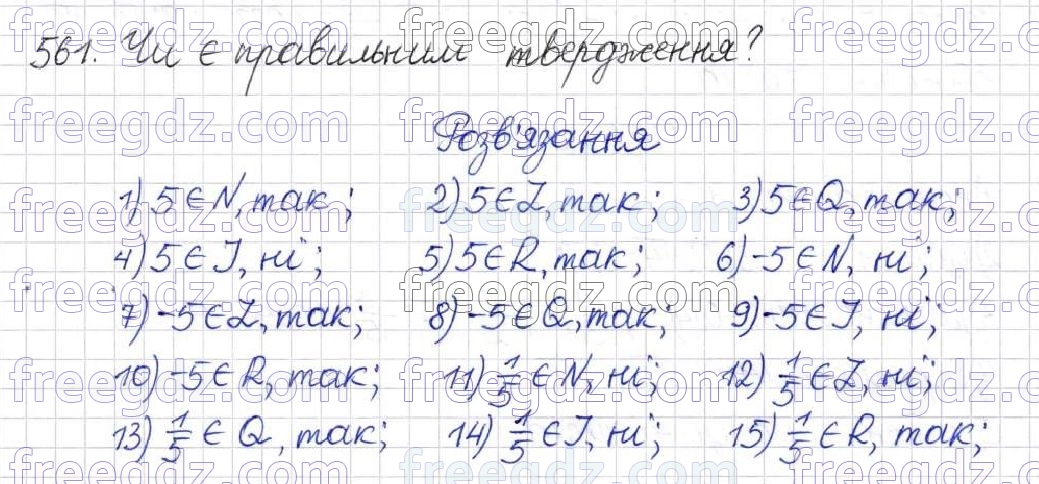 561. Чи є правильним твердження?
Розв'язання
1) 5 ∈ N, так; 2) 5 ∈ Z, так; 3) 5 ∈ Q, так;
4) 5 ∈ J, ні; 5) 5 ∈ R, так; 6) -5 ∈ N, ні;
7) -5 ∈ Z, так; 8) -5 ∈ Q, так; 9) -5 ∈ J, ні;
10) -5 ∈ R, так; 11) 1/5 ∈ N, ні; 12) 1/5 ∈ Z, ні;
13) 1/5 ∈ Q, так; 14) 1/5 ∈ J, ні; 15) 1/5 ∈ R, так;